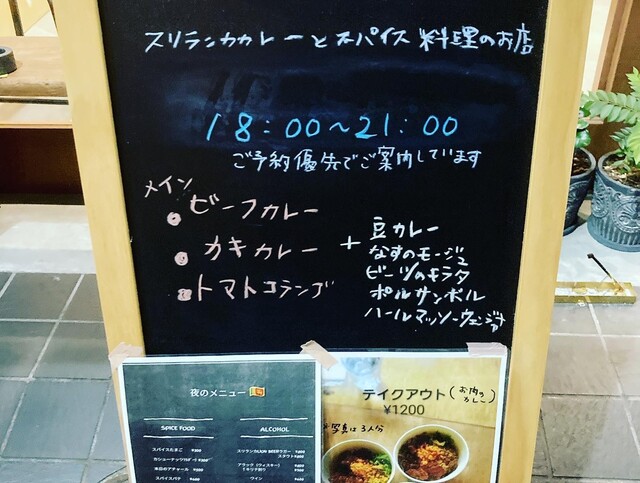 スリランカカレーとスパイス料理のお店
18:00~21:00
ご予約優先でご案内しています
メイン
ビーフカレー
カキカレー
トマトコランゴ
+
豆カレー
なすのモージュ
ビーツのキラタ
ポルサンボル
ハールマッソーウェンジャナ
夜のメニュー
SPICE FOOD
スパイスたまご ¥300
本日のアチャール ¥300
スパイスパテ
ALCOHOL
スリランカLION BEERラガー
スタウト
アラック(ウィスキー)
ワイン
テイクアウト(お肉のカレー)
¥1200
写真は3人分